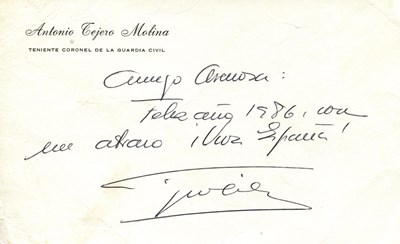 Antonio Tejero Molina
TENIENTE CORONEL DE LA GUARDIA CIVIL
Amigo
Feliz año 1986, con
un abrazo ¡Viva España!